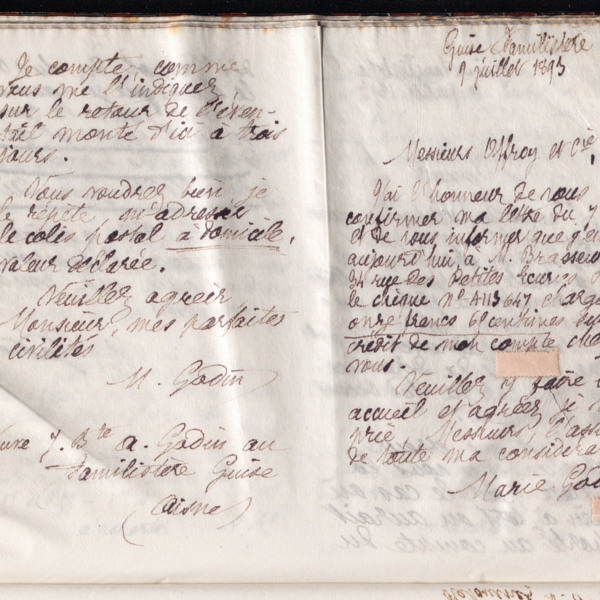 Je compte, comme
vous me l'indiquez
sur le retour de l'éven-
tail monté d'ici à trois
jours.
Vous voudrez bien, je
le répète m'adresser
le colis postal à domicile,
valeur déclarée.
Veuillez agréer
Monsieur, mes parfaites
civilités
M. Godin
Vve J. Bte A. Godin au
Familistère Guise
(Aisne)
Guise Familistère
9 juillet 1893
Messieurs Offroy et Cie,
J'ai l'honneur de vous
confirmer ma lettre du 7
et de vous informer que
aujourd'hui à M. Brasseur
54 rue des Petites Écuries
le chèque No A113647
onze francs 60 centimes
crédit de mon compte chez
vous.
Veuillez y faire
accueil et agréer, je
prie Messieurs,
de toute ma
Marie